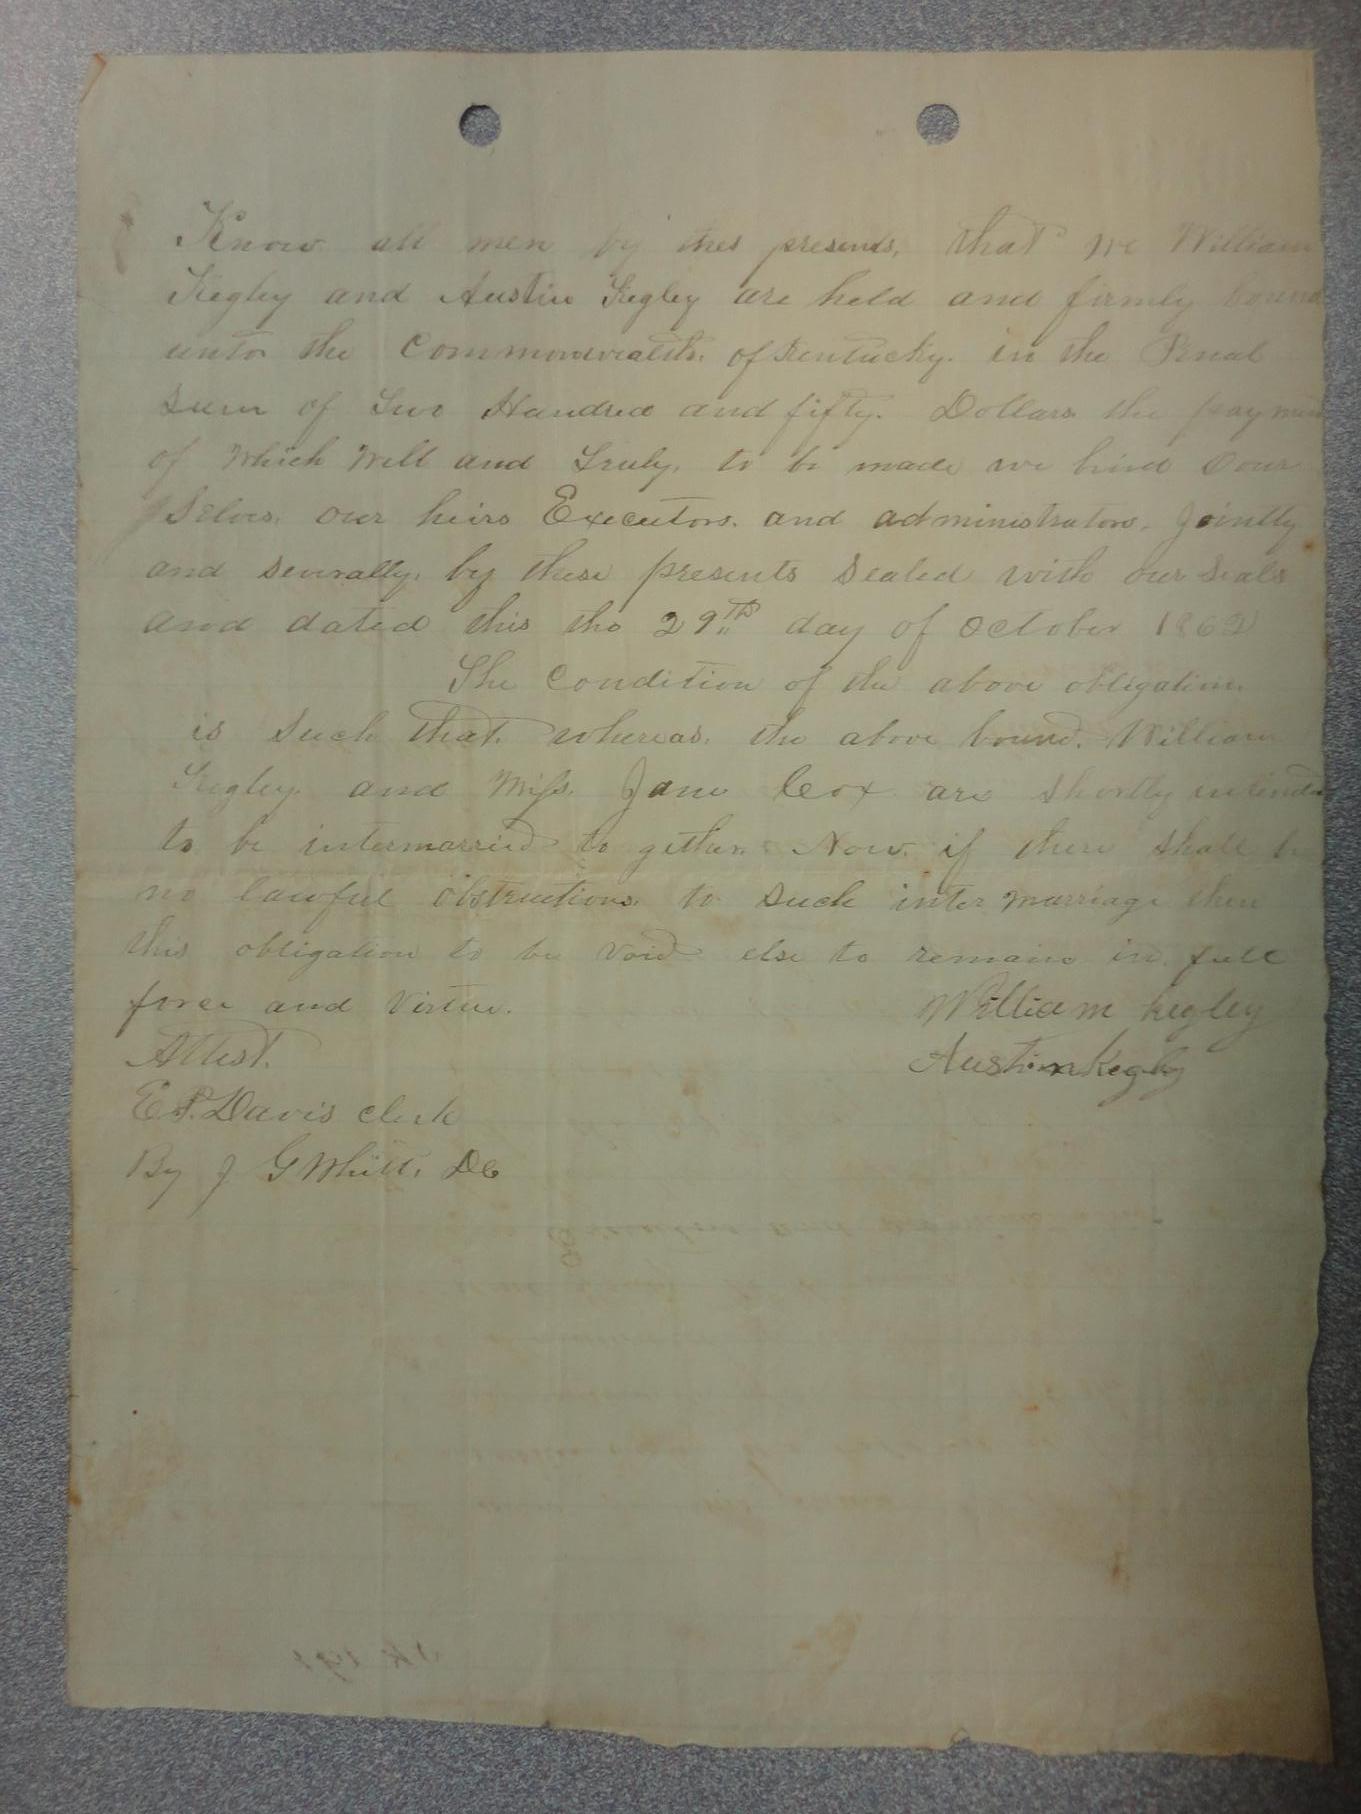 Know all men by thes presents, that we William
Kegley and Austin Kegley are held and firmly bound
unto the Commonwealth. of Kentucky. in the Penal
Sum of Two Hundred and fifty. Dollars the payment
of Which Well and Truly, to be made we bind Our
Selves. our heirs Executors. and administrators. Jointly
and severally, by these presents Sealed with our Seals
and dated this the 29th day of October 1862
The Condition of the above obligation.
is Such that. whereas. the above bound. William
Kegley. and Miss. Jane Cox are Shortly
to be intermarried to gether. Now. if there Shall be
no lawful obstructions. to such inter marriage then
this obligation to be Void else to remain in full
force and Virtue. William Kegley
Attest. Austin Kegley
E.P. Davis Clerk
By J G Whitt. DC